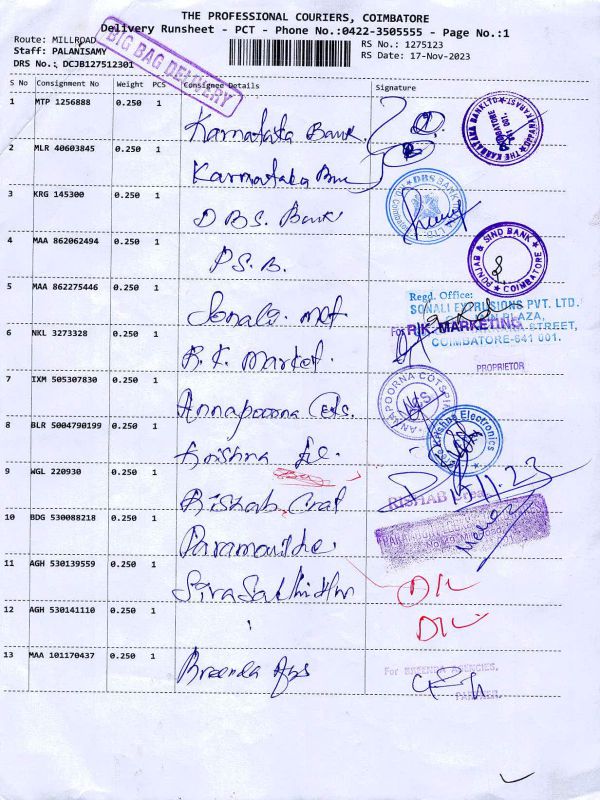 THE PROFESSIONAL COURIERS, COIMBATORE
Delivery Runsheet - PCT - Phone No.:0422-3505555 - Page No.:1
Route: MILLROAD
Staff: PALANISAMY
DRS No.: DCJB127512301
RS No.: 1275123
RS Date: 17-Nov-2023
BIG BAG DELIVERY
S No Consignment No Weight PCS Consignee Details Signature
1 MTP 1256888 0.250 1 Karnataka Bank
2 MLR 40603845 0.250 1 Karnataka
3 KRG 145300 0.250 1 DBS. Bank
4 MAA 862062494 0.250 1 P.S.B.
5 MAA 862275446 0.250 1 Sonali
6 NKL 3273328 0.250 1 R.K. Market
7 IXM 505307830 0.250 1 Annapoorna
8 BLR 5004790199 0.250 1 Krishna
9 WGL 220930 0.250 1 Rishab
10 BDG 530088218 0.250 1
11 AGH 530139559 0.250 1
12 AGH 530141110 0.250 1
13 MAA 101170437 0.250 1 Breenda Ags
THE KARNATAKA BANK LTD
COIMBATORE
DBS BANK
PUNJAB & SIND BANK
COIMBATORE
Regd. Office:
SONALI EXTRUSIONS PVT. LTD.
PLAZA,
STREET,
COIMBATORE-641 001.
For R.K. MARKETING
PROPRIETOR
ANNAPOORNA COTSPIN
Krishna Electronics
RISHAB
17.11.23
For BREENDA AGENCIES,
PARTNER.